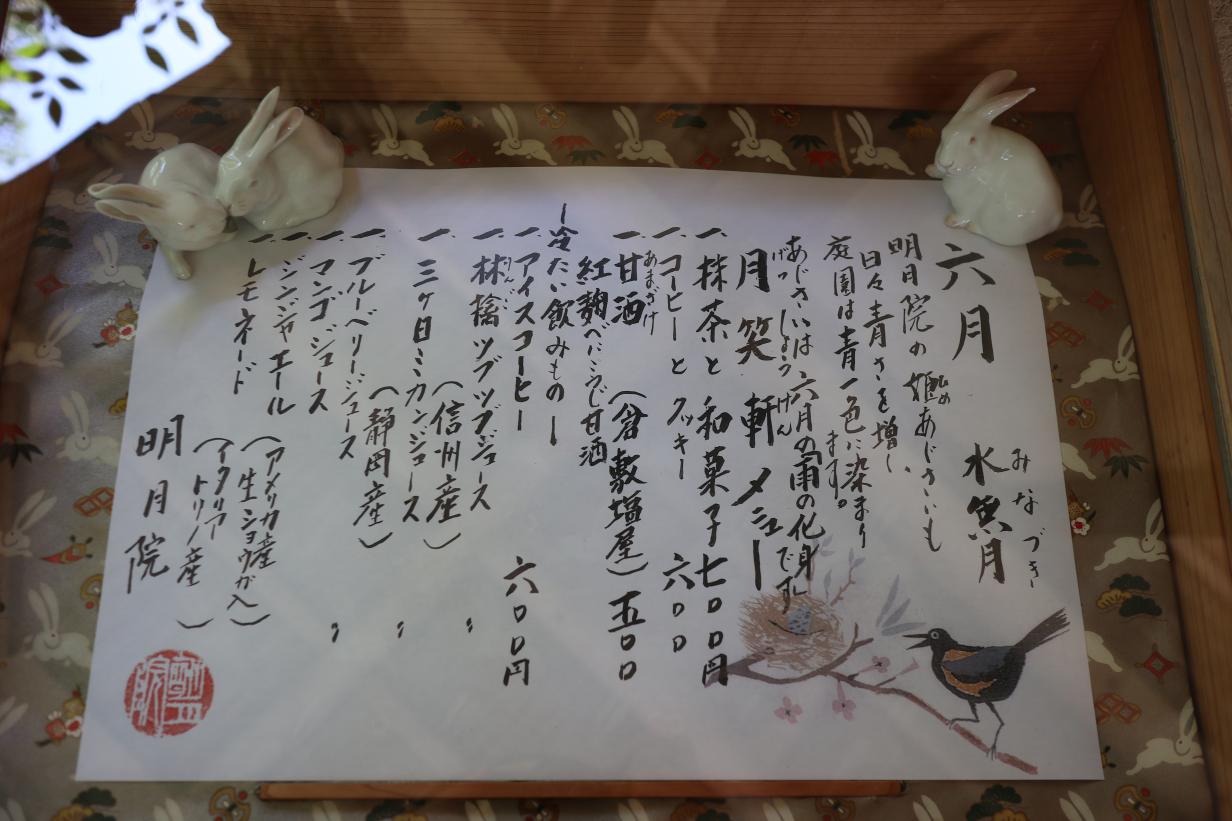 六月
水無月
みなづき
明月院の姫あじさいも
日々青さを増し
庭園は青一色に染まり
ます。
あじさいは六月の雨の化身です
月笑軒メニュー
げっしょうけん
一、抹茶と和菓子 七〇〇円
一、コーヒーとクッキー 六〇〇
一、甘酒（倉敷塩屋）五〇〇
あまざけ
紅麹べにこうじ甘酒
ー冷たい飲みものー
一、アイスコーヒー 六〇〇円
一、林檎ツブツブジュース
りんご
（信州産） 〃
一、三ヶ日ミカンジュース
（静岡産） 〃
一、ブルーベリージュース 〃
一、マンゴジュース
一、ジンジャエール
（アメリカ産
生ショウガ入）
一、レモネード
（イタリア
トリノ産）
明月院